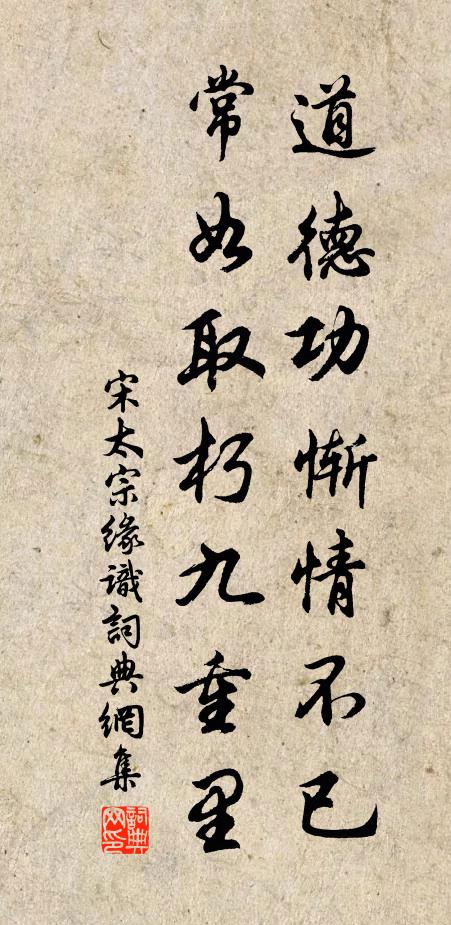 道德功惭情不已
常如取朽九重里
宋太宗緣識詞典網集
詞典网印